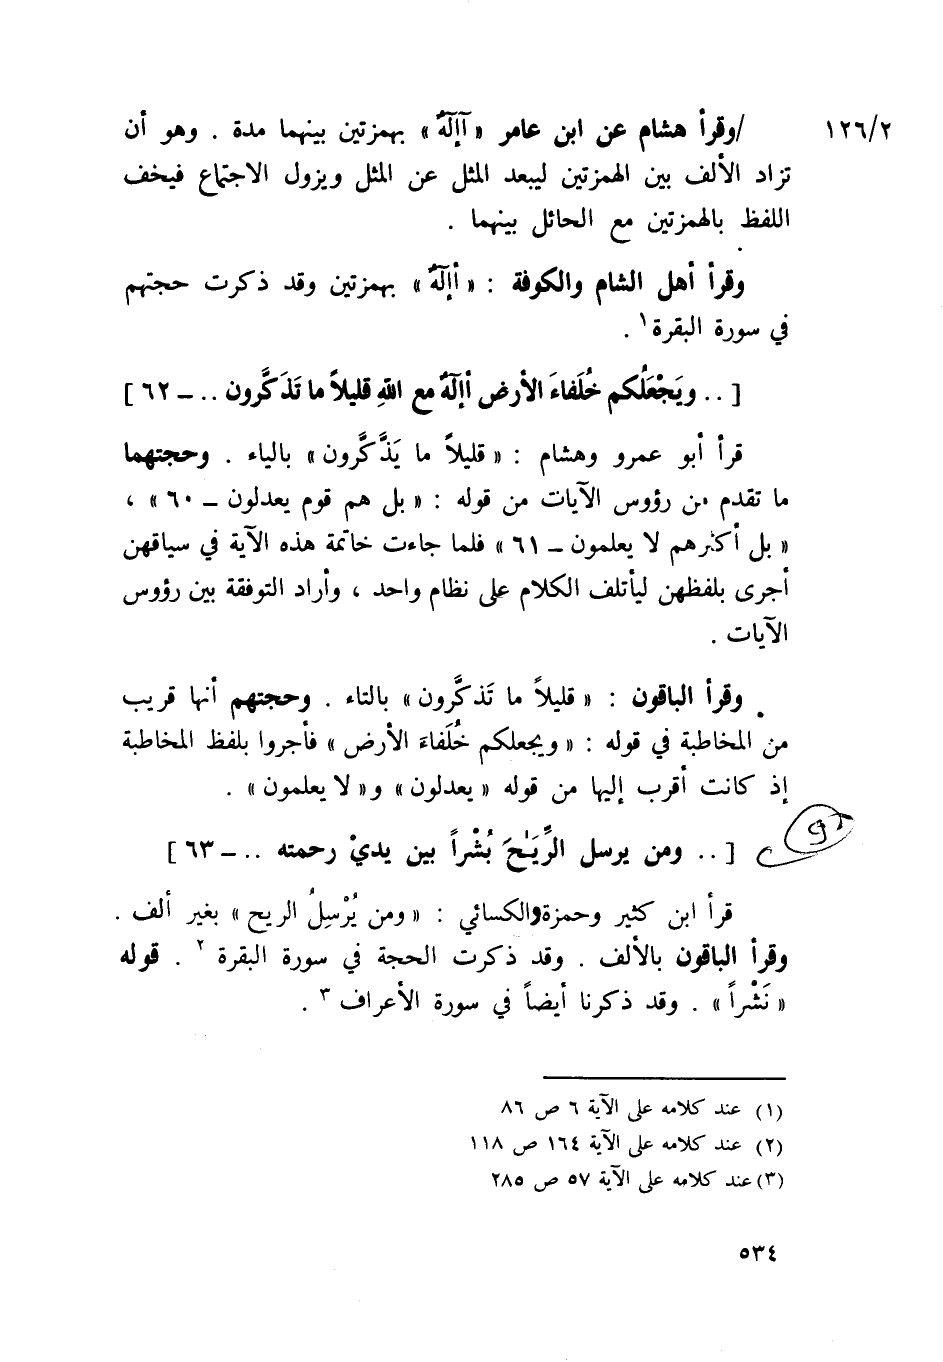 ١٢٦/٢ /وقرأ هشام عن ابن عامر « آإلَهٌ » بهمزتين بينهما مدة . وهو أن
تزاد الألف بين الهمزتين ليبعد المثل عن المثل ويزول الاجتماع فيخف
اللفظ بالهمزتين مع الحائل بينهما .
وقرأ أهل الشام والكوفة : « أإلَهٌ » بهمزتين وقد ذكرت حجتهم
في سورة البقرة١ .
[ .. ويَجْعَلُكم خُلَفاءَ الأرض أإلَهٌ مع اللهِ قليلاً ما تَذكَّرون .. – ٦٢ ]
قرأ أبو عمرو وهشام : « قليلاً ما يَذَّكَّرون » بالياء . وحجتهما
ما تقدم من رؤوس الآيات من قوله : « بل هم قوم يعدلون – ٦٠ » ،
« بل أكثرهم لا يعلمون – ٦١ » فلما جاءت خاتمة هذه الآية في سياقهن
أجرى بلفظهن ليأتلف الكلام على نظام واحد ، وأراد التوفقة بين رؤوس
الآيات .
وقرأ الباقون : « قليلاً ما تَذكَّرون » بالتاء . وحجتهم أنها قريب
من المخاطبة في قوله : « ويجعلكم خُلَفاءَ الأرض » فأجروا بلفظ المخاطبة
إذ كانت أقرب إليها من قوله « يعدلون » و« لا يعلمون » .
[ .. ومن يرسل الرِّيَـٰحَ بُشْراً بين يديْ رحمته .. – ٦٣ ]
قرأ ابن كثير وحمزة والكسائي : « ومن يُرْسِلُ الريح » بغير ألف .
وقرأ الباقون بالألف . وقد ذكرت الحجة في سورة البقرة ٢ . قوله
« نَشْراً » . وقد ذكرنا أيضاً في سورة الأعراف ٣ .
(١) عند كلامه على الآية ٦ ص ٨٦
(٢) عند كلامه على الآية ١٦٤ ص ١١٨
(٣) عند كلامه على الآية ٥٧ ص ٢٨٥
٥٣٤